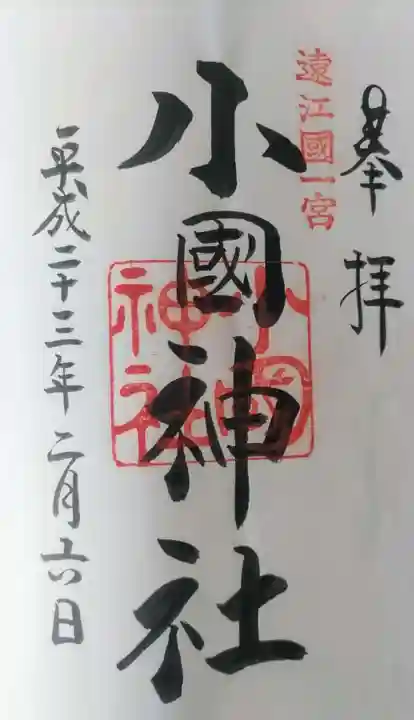 奉拝
遠江國一宮
小國神社
小國神社
平成二十三年二月十六日